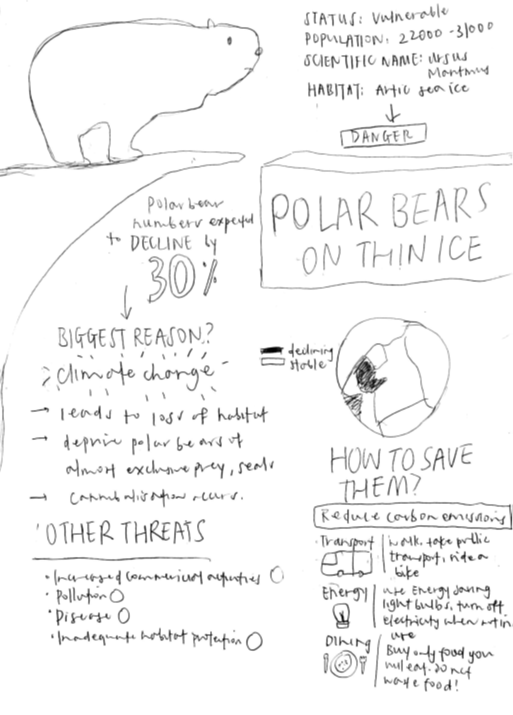 STATUS: Vulnerable
POPULATION: 22000 - 31000
SCIENTIFIC NAME: Ursus
Maritimus
HABITAT: Artic sea ice
DANGER
POLAR BEARS
ON THIN ICE
Polar bear
numbers expected
to DECLINE by
30%
BIGGEST REASON?
climate change
→ leads to loss of habitat
→ deprive polar bears of
almost exclusive prey, seals
→ cannibalisation occurs.
OTHER THREATS
• Increased commercial activities
• Pollution
• Disease
• Inadequate habitat protection
declining
stable
HOW TO SAVE
THEM?
Reduce carbon emissions
Transport
walk, take public
transport, ride a
bike
Energy
use Energy saving
light bulbs, turn off
electricity when not in
use
Dining
Buy only food you
will eat. Do not
waste food!